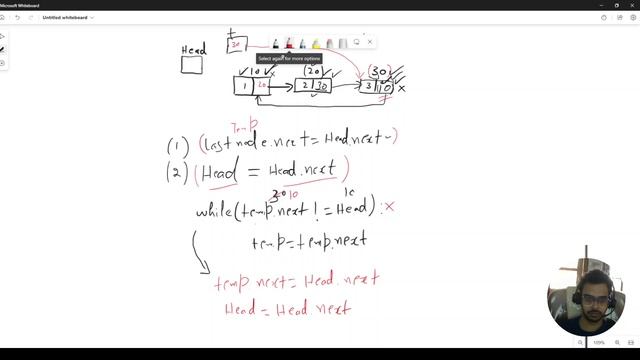 Microsoft Whiteboard
Untitled whiteboard
t
30
Head
Select again for more options
10 x
(20)
(30)
1 20
2 30
3 10 x
Temp
(1) (last node.next = Head.next)
(2) (Head = Head.next)
30 10 10
while(temp.next != Head): x
temp = temp.next
temp.next = Head.next
Head = Head.next
109%